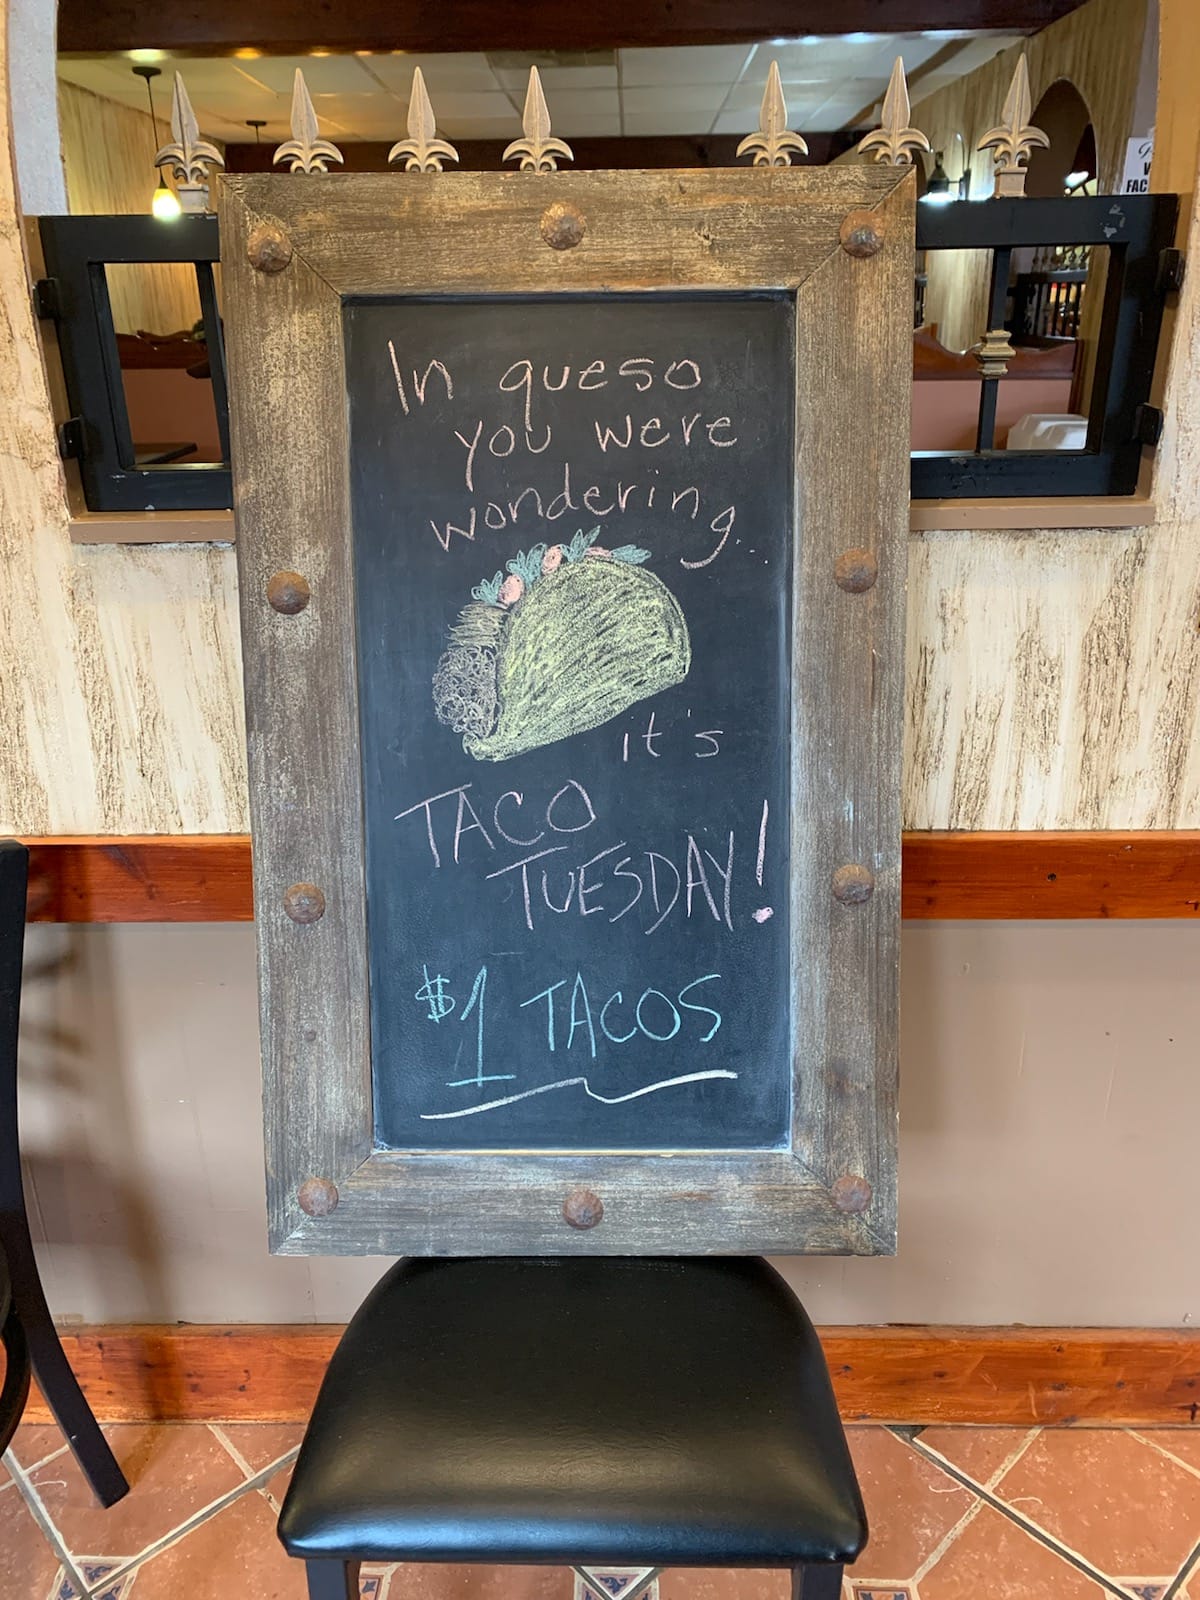 In queso
you were
wondering..
it's
TACO
TUESDAY!
$1 TACOS